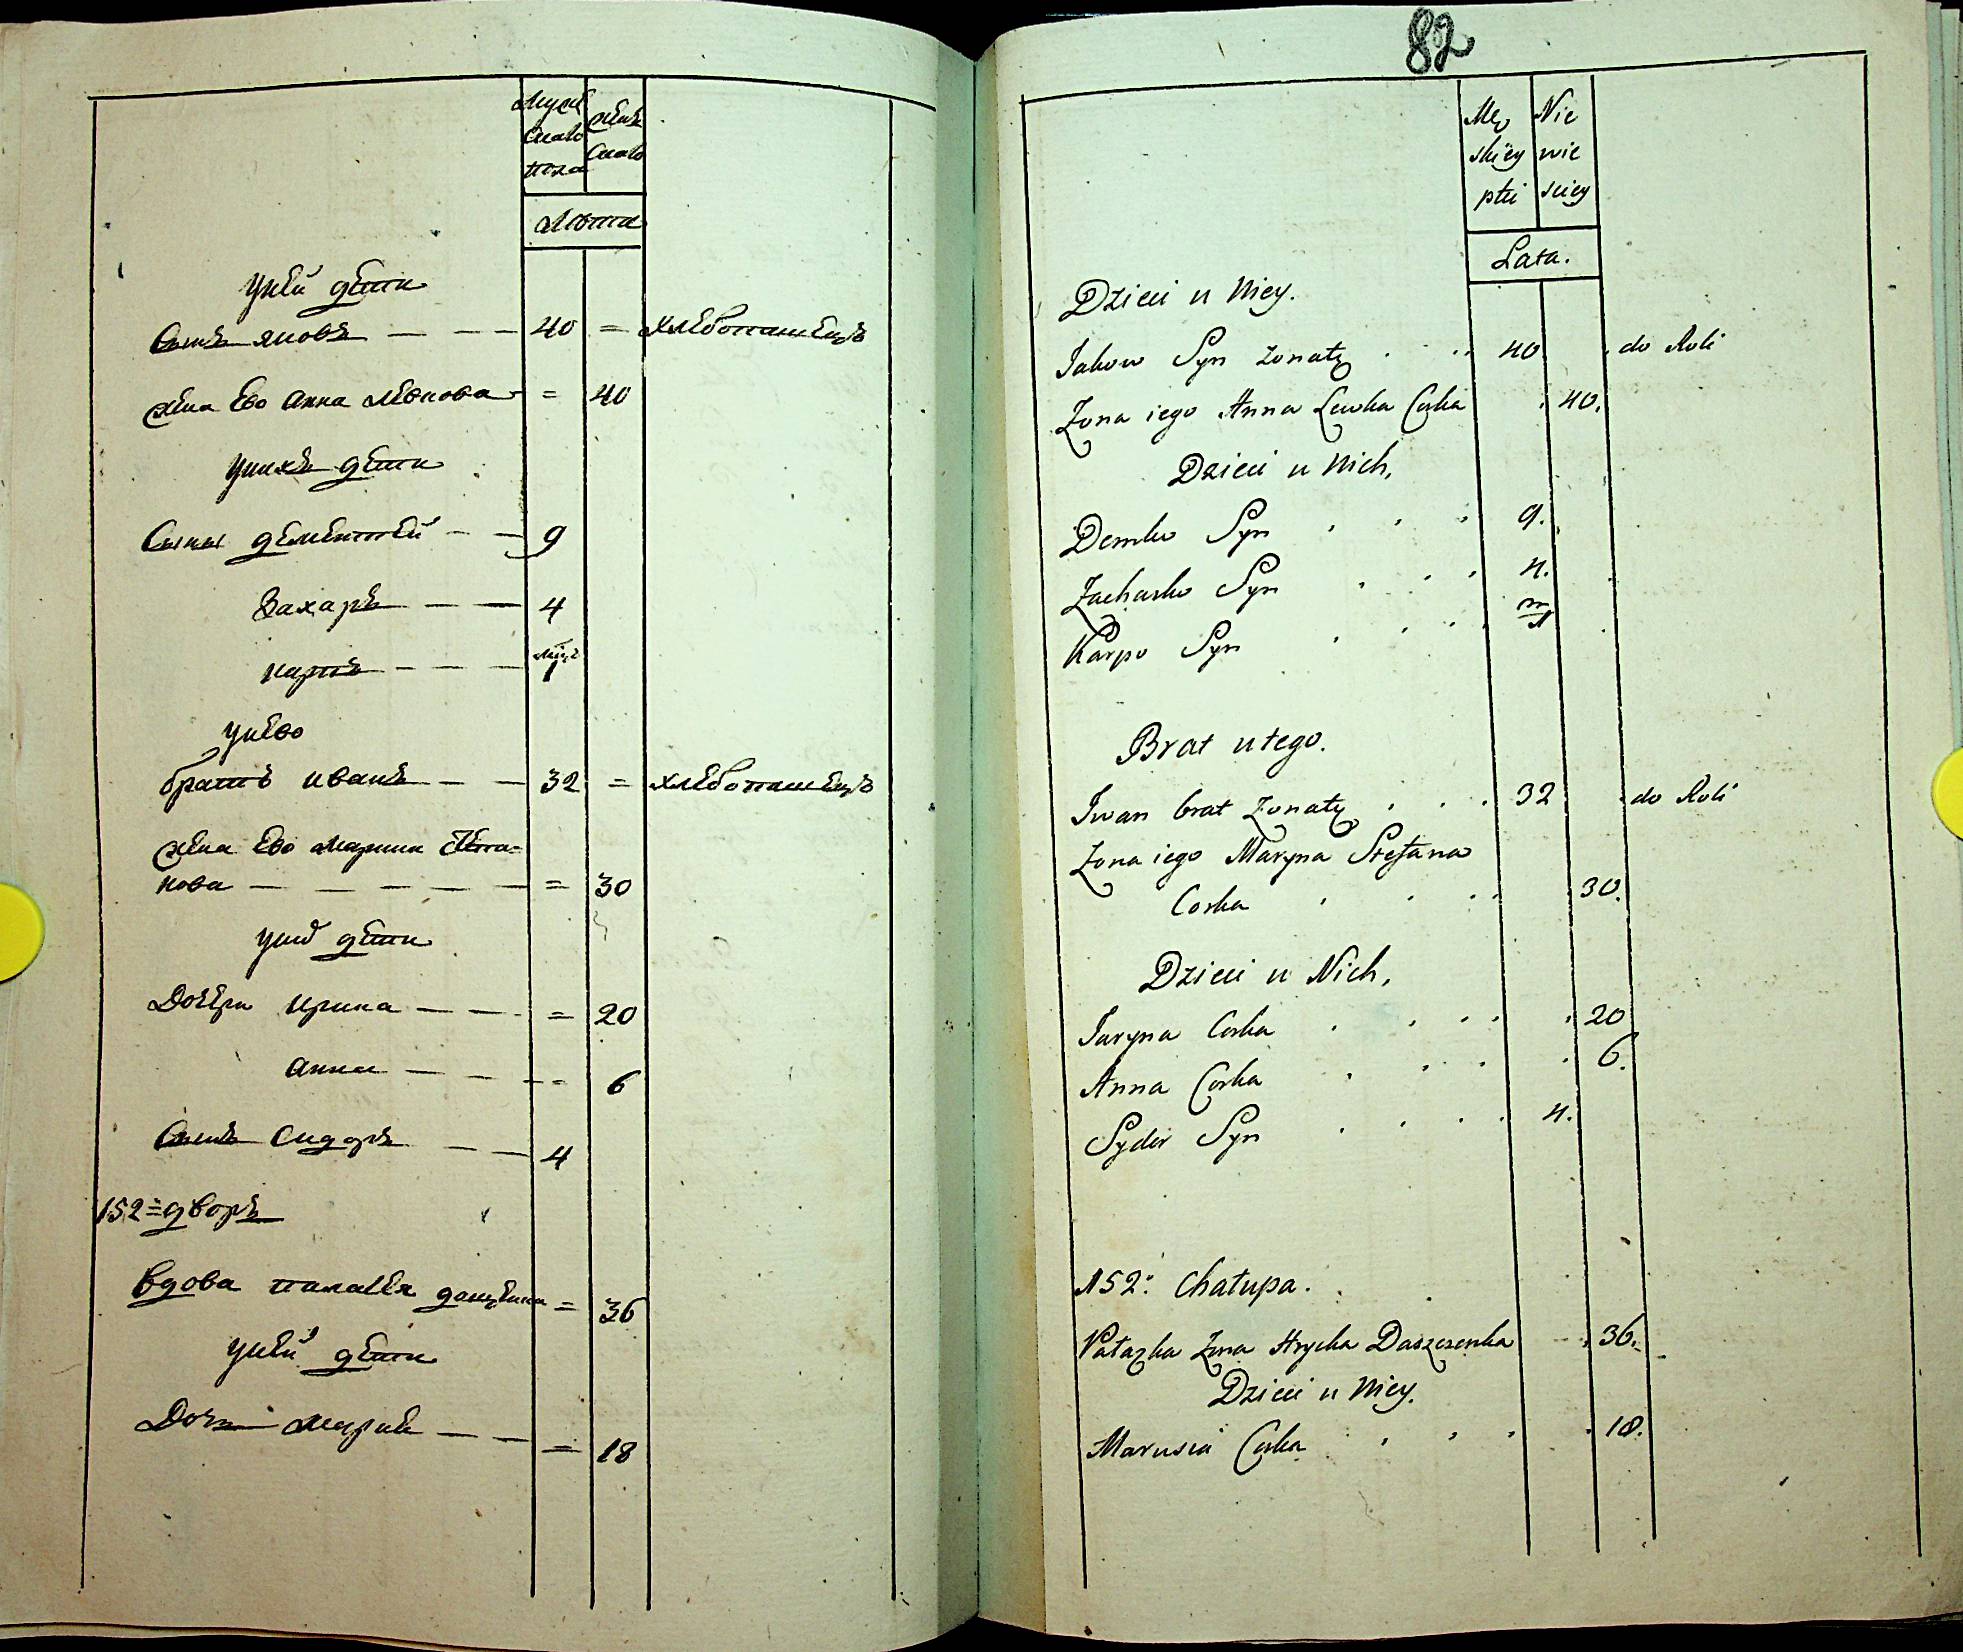 Мужескаго пола
Женскаго
Лѣта
У ней дѣти
Сынъ яковъ — — — 40 = хлѣбопашецъ
жена Ево Анна левкова = 40
У нихъ дѣти
Сыны дементей — — 9
Захаръ — — 4
карпъ — — — мцъ 1
У нево
братъ иванъ — — 32 = хлѣбопашецъ
жена Ево марина Степа=
нова — — — — — = 30
У нихъ дѣти
Дочери ирина — — = 20
Анна — — — = 6
Сынъ Сидоръ — — 4
152=й дворъ
Вдова палагея = 36
У ней дѣти
Дочь марья — — = 18
82
Męskiey płci
Niewieściey
Lata.
Dzieci u Niey.
Jakow Syn żonaty 40 do Roli
Żona iego Anna Lewka Corka 40.
Dzieci u Nich,
Demko Syn 9.
Zacharko Syn 4.
Karpo Syn m 1
Brat u tego.
Iwan brat Żonaty 32 do Roli
Żona iego Maryna Stefana
Corka 30.
Dzieci u Nich,
Jaryna Corka 20
Anna Corka 6.
Sydir Syn 4.
152: Chałupa.
Pałazka Żona Hrycka Daszczenka 36.
Dzieci u Niey.
Marusia Corka 18.